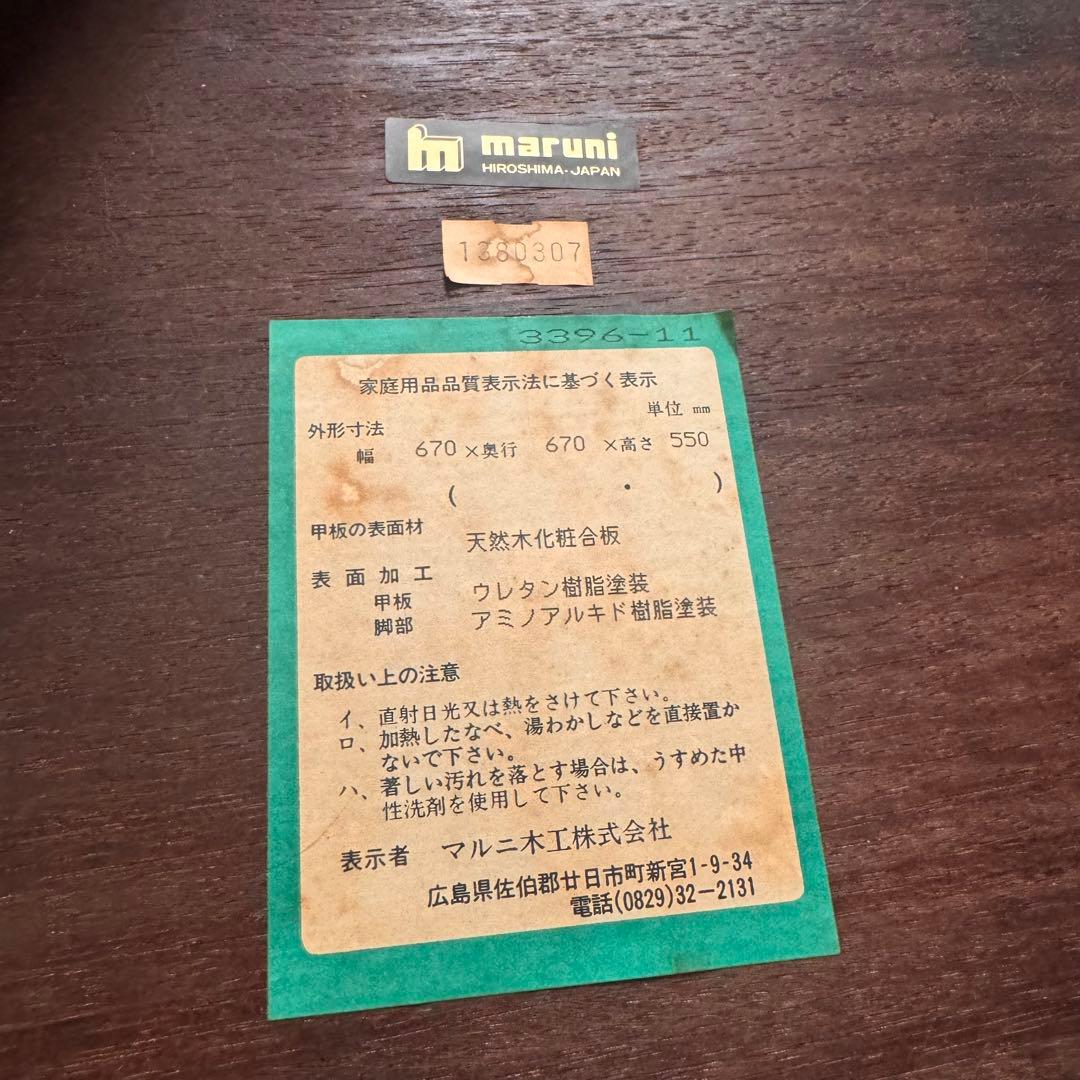 maruni
HIROSHIMA-JAPAN
1380307
3396-11
家庭用品品質表示法に基づく表示
単位 mm
外形寸法
幅 670 ×奥行 670 ×高さ 550
( ・ )
甲板の表面材 天然木化粧合板
表面加工
甲板 ウレタン樹脂塗装
脚部 アミノアルキド樹脂塗装
取扱い上の注意
イ、直射日光又は熱をさけて下さい。
ロ、加熱したなべ、湯わかしなどを直接置か
ないで下さい。
ハ、著しい汚れを落とす場合は、うすめた中
性洗剤を使用して下さい。
表示者 マルニ木工株式会社
広島県佐伯郡廿日市町新宮1-9-34
電話(0829)32-2131